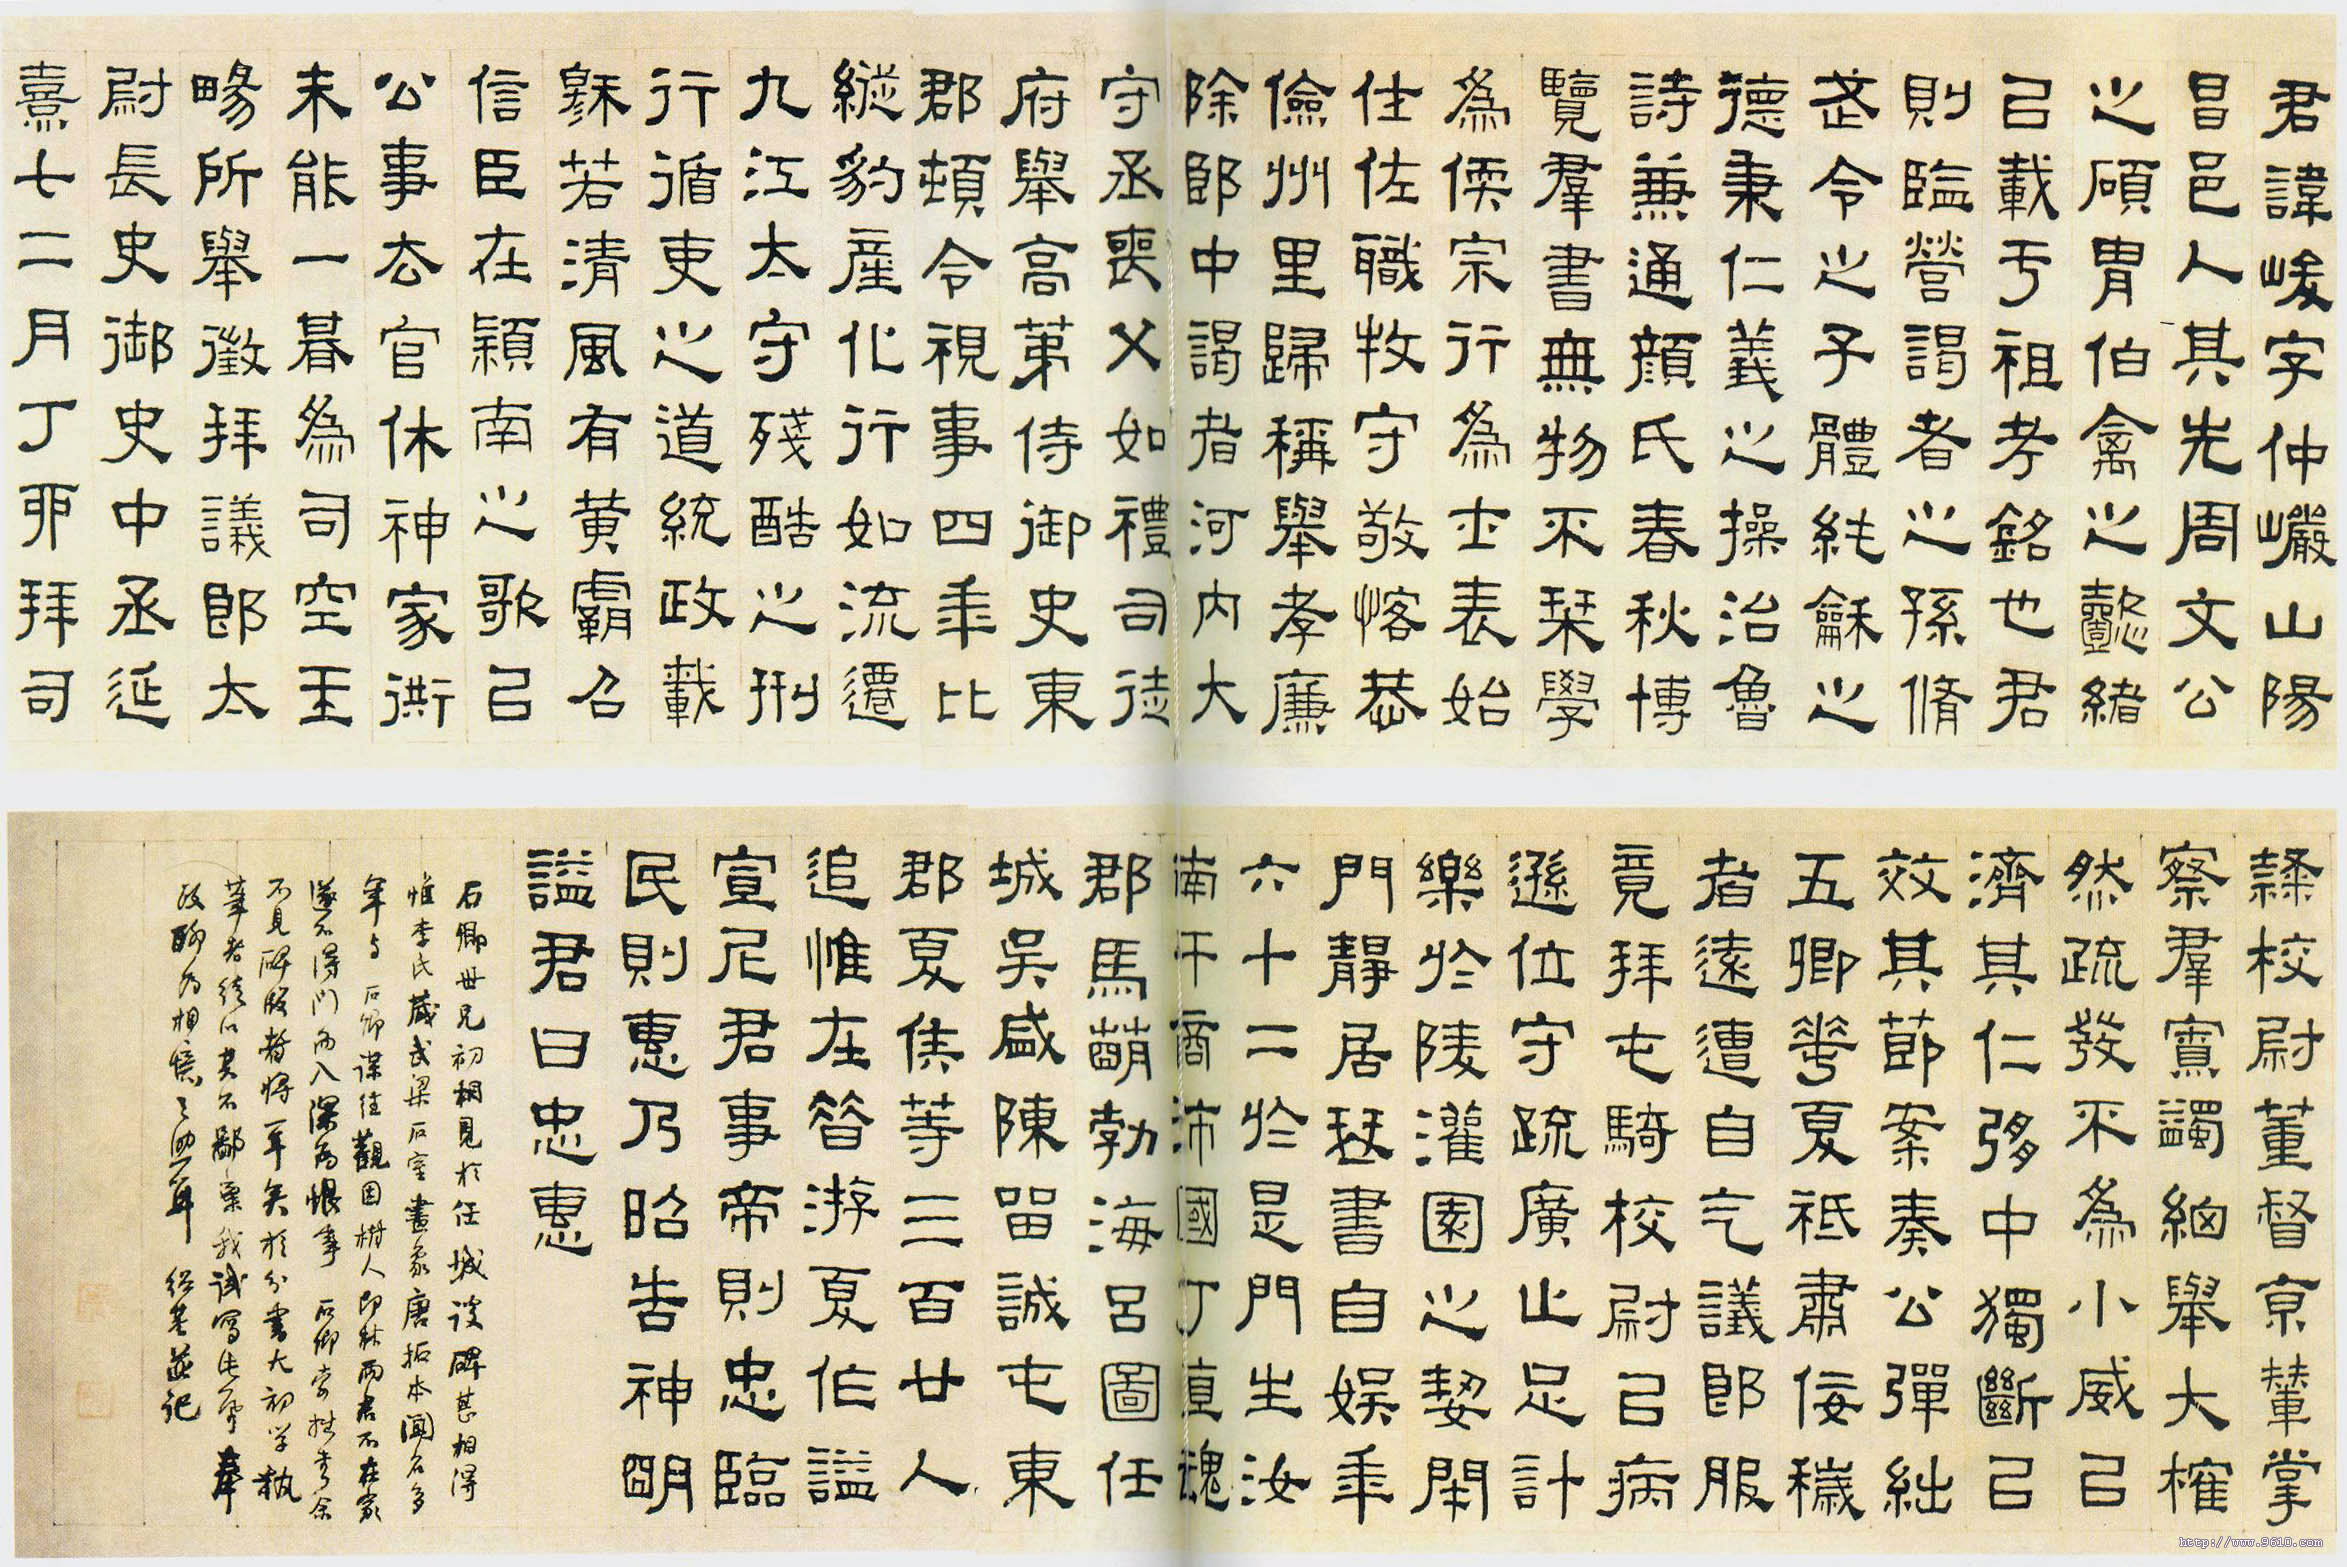 君諱峻字仲巖山陽
昌邑人其先周文公
之碩胄伯禽之懿緒
㠯載于祖考銘也君
則臨營謁者之孫脩
武令之子體純龢之
德秉仁義之操治魯
詩兼通顏氏春秋博
覽羣書無物不栞學
為傂宗行為士表始
仕佐職牧守敬恪恭
儉州里歸稱舉孝廉
除郎中謁者河內大
守丞喪父如禮司徒
府舉高第侍御史東
郡頓令視事四年比
縱豹產化行如流遷
九江太守殘酷之刑
行循吏之道統政載
穌若清風有黃霸召
信臣在潁南之歌㠯
公事去官休神家衖
未能一朞為司空王
暢所舉徵拜議郎太
尉長史御史中丞延
熹七二月丁卯拜司
隸校尉董督京輦掌
察羣寮蠲細舉大榷
然疏發不為小威㠯
濟其仁弸中獨斷㠯
效其節案奏公彈絀
五卿華夏祗肅佞穢
者遠遭自乞議郎服
竟拜屯騎校尉㠯病
遜位守疏廣止足計
樂於陵灌園之契閈
門靜居琴書自娛年
六十二於是門生汝
南干商沛國丁直魏
郡馬萌勃海呂圖任
城吳盛陳留誠屯東
郡夏侯等三百廿人
追惟在昔游夏作謚
宣尼君事帝則忠臨
民則惠乃昭告神明
謚君曰忠惠
石卿世兄初相見於任城談碑甚相得
惟李氏藏武梁石室畫象唐拓本聞名多
年與石卿謀往觀因樹人即林兩君不在家
遂不得門而入深為恨事石卿索拙書余
不見碑版者將一年矣於分書大初學執
筆者然以其不鄙棄我試寫生席奉
政聊為相憶之洫耳